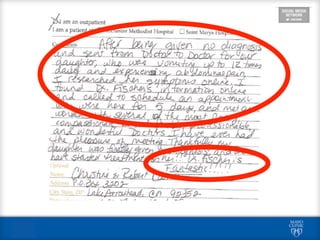 SOCIAL MEDIA
NETWORK
I am an outpatient
I am a patient Methodist Hospital Saint Marys
After being given no diagnosis
and sent from Doctor to Doctor for our
daughter, who was vomiting up to 12 times
daily and experiencing abdominal pain,
I researched her symptoms online. I
found Dr. Fischer's information online
and called to schedule an appointment
were here 5 days, and met
several of the most
compassionate
and wonderful Doctors I have ever had
the pleasure of meeting. Thankfully my
daughter was given diagnosis and
have started treatment Dr. Fischer is
Fantastic!
Name Christine & Robert
Address P.O. Box 3202
City, State, Lake Arrowhead, CA 92352
MAYO
CLINIC